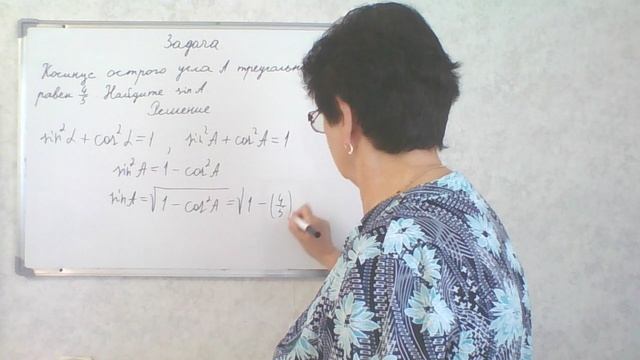 Задача
Косинус острого угла A треугольн
равен 4/5. Найдите sin A.
Решение
sin²α + cos²α = 1, sin²A + cos²A = 1
sin²A = 1 - cos²A
sin A = √(1 - cos²A) = √1 - (4/5)